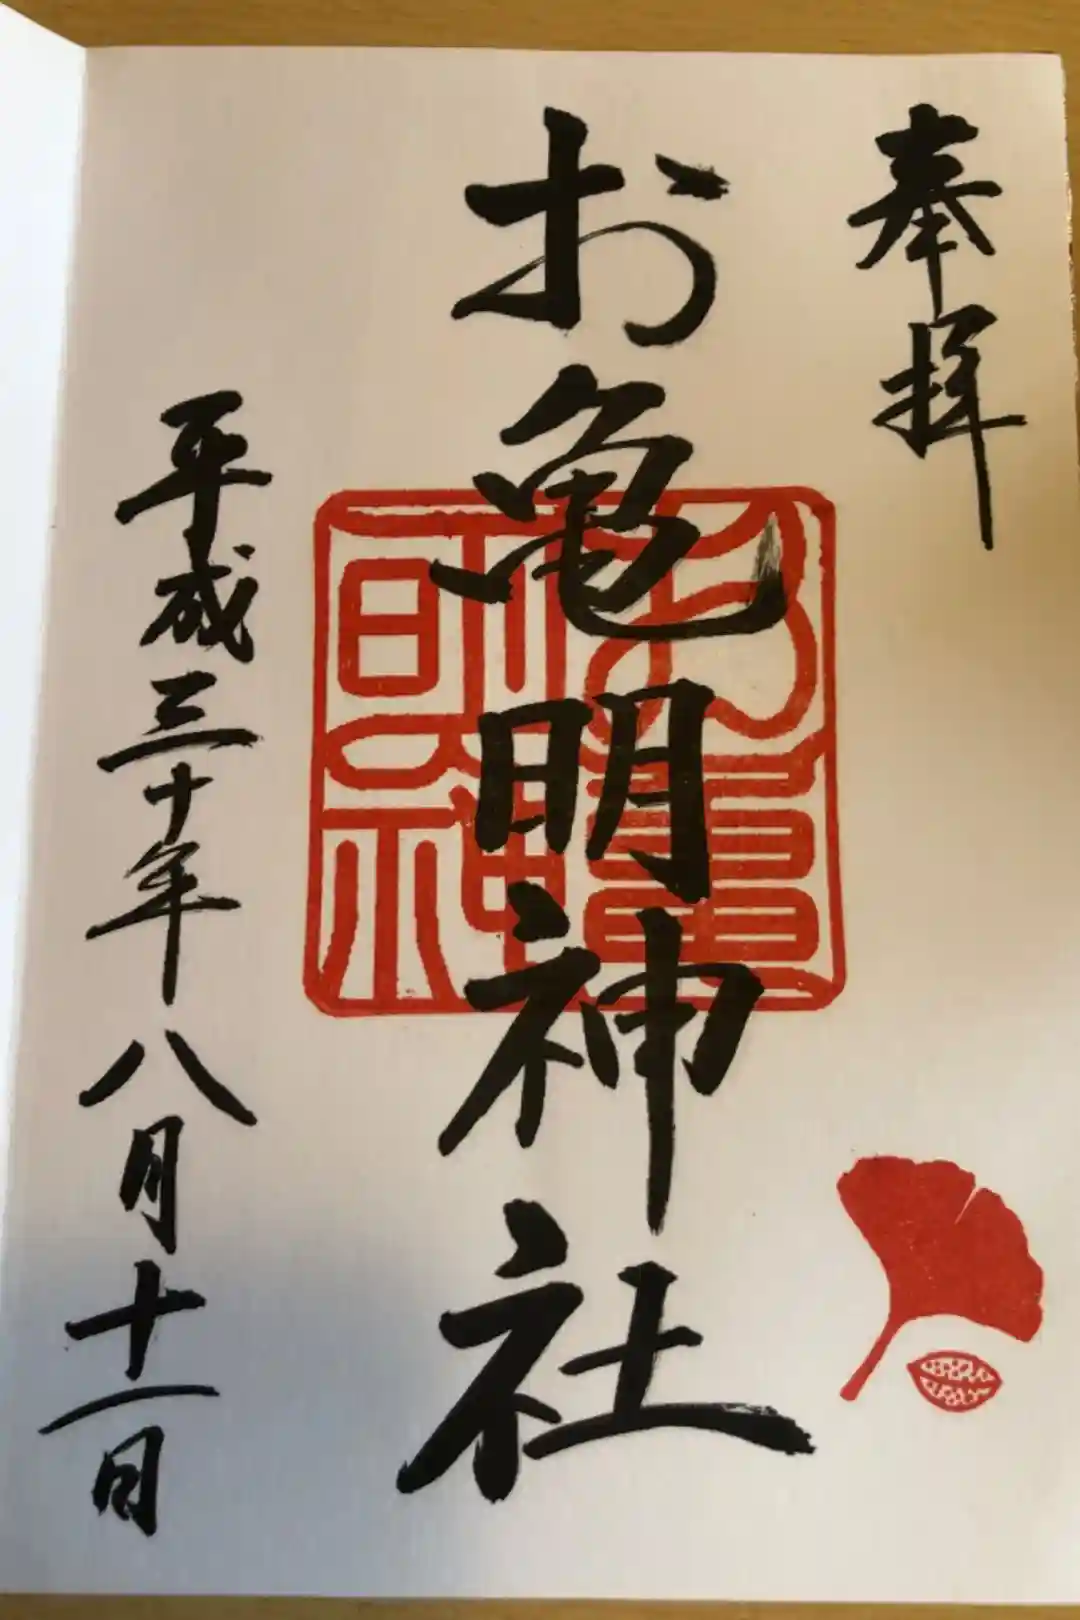 奉拝
お亀明神社
平成三十年八月十一日